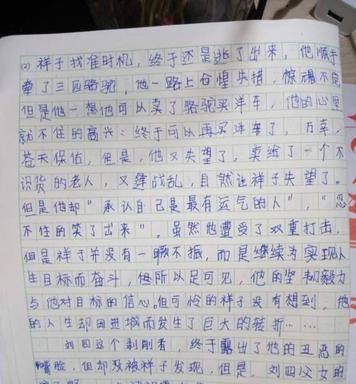 (2) 祥子找准时机，终于还是逃了出来，他顺手
牵了三匹骆驼，他一路上仓惶失措，惊魂不定
但是他一想他可以卖了骆驼买洋车，他的心里
就不住的高兴：终于可以再买洋车了，万幸，
苍天保佑，但是，他又失望了。卖给了一个不
识货的老人，又逢战乱，自然让祥子失望了。
但是他却“承认自己是最有运气的人”，“忍
不住的笑了出来”。虽然他遭受了双重打击，
但是祥子并没有一蹶不振，而是继续为实现人
生目标而奋斗，他所以足可见，他的坚韧毅力
与他对目标的信心，但可怜的祥子没有想到，他
的人生却因进城而发生了巨大的转折……
刘四这个剥削者，终于露出了他的丑恶的
嘴脸，但却没被祥子发现，但是，刘四父女的